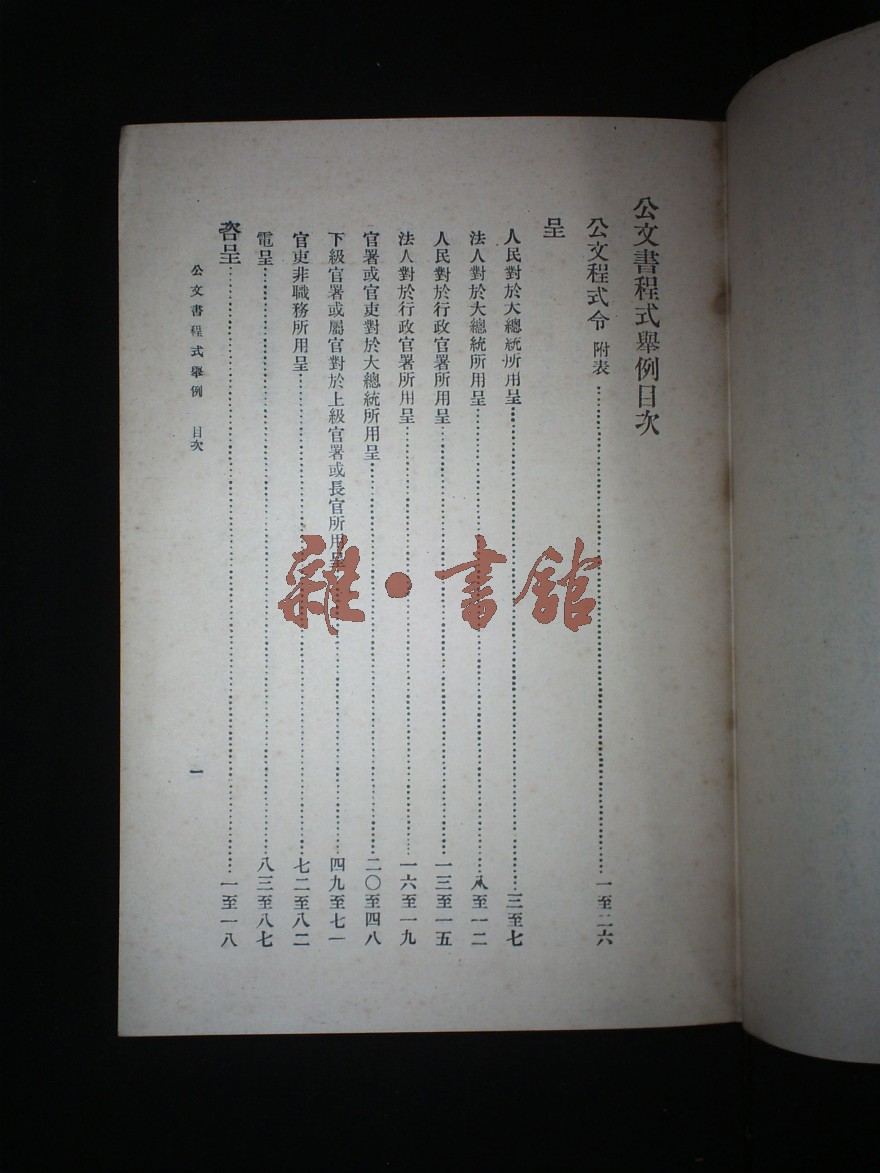 公文書程式舉例目次
公文程式令 附表 一至二六
呈
人民對於大總統所用呈 三至七
法人對於大總統所用呈 八至一二
人民對於行政官署所用呈 一三至一五
法人對於行政官署所用呈 一六至一九
官署或官吏對於大總統所用呈 二〇至四八
下級官署或屬官對於上級官署或長官所用呈 四九至七一
官吏非職務所用呈 七二至八二
電呈 八三至八七
咨呈 一至一八
公文書程式舉例 目次 一
雜·書館